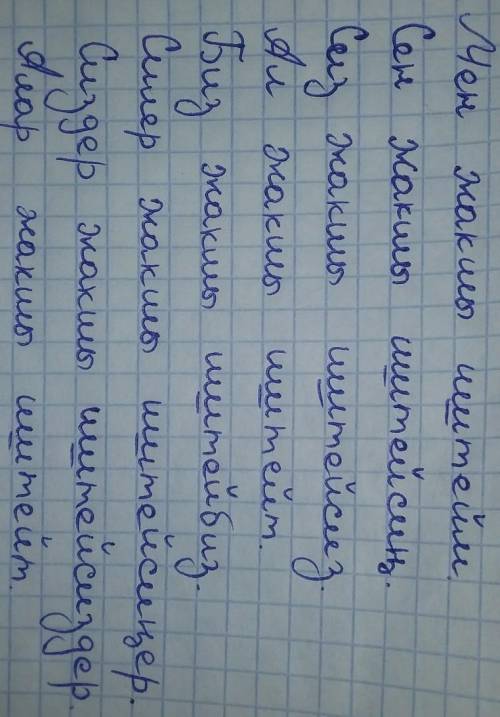 Мен жакшы иштейм.
Сен жакшы иштейсиң.
Сиз жакшы иштейсиз.
Ал жакшы иштейт.
Биз жакшы иштейбиз.
Силер жакшы иштейсиңер.
Сиздер жакшы иштейсиздер.
Алар жакшы иштейт.